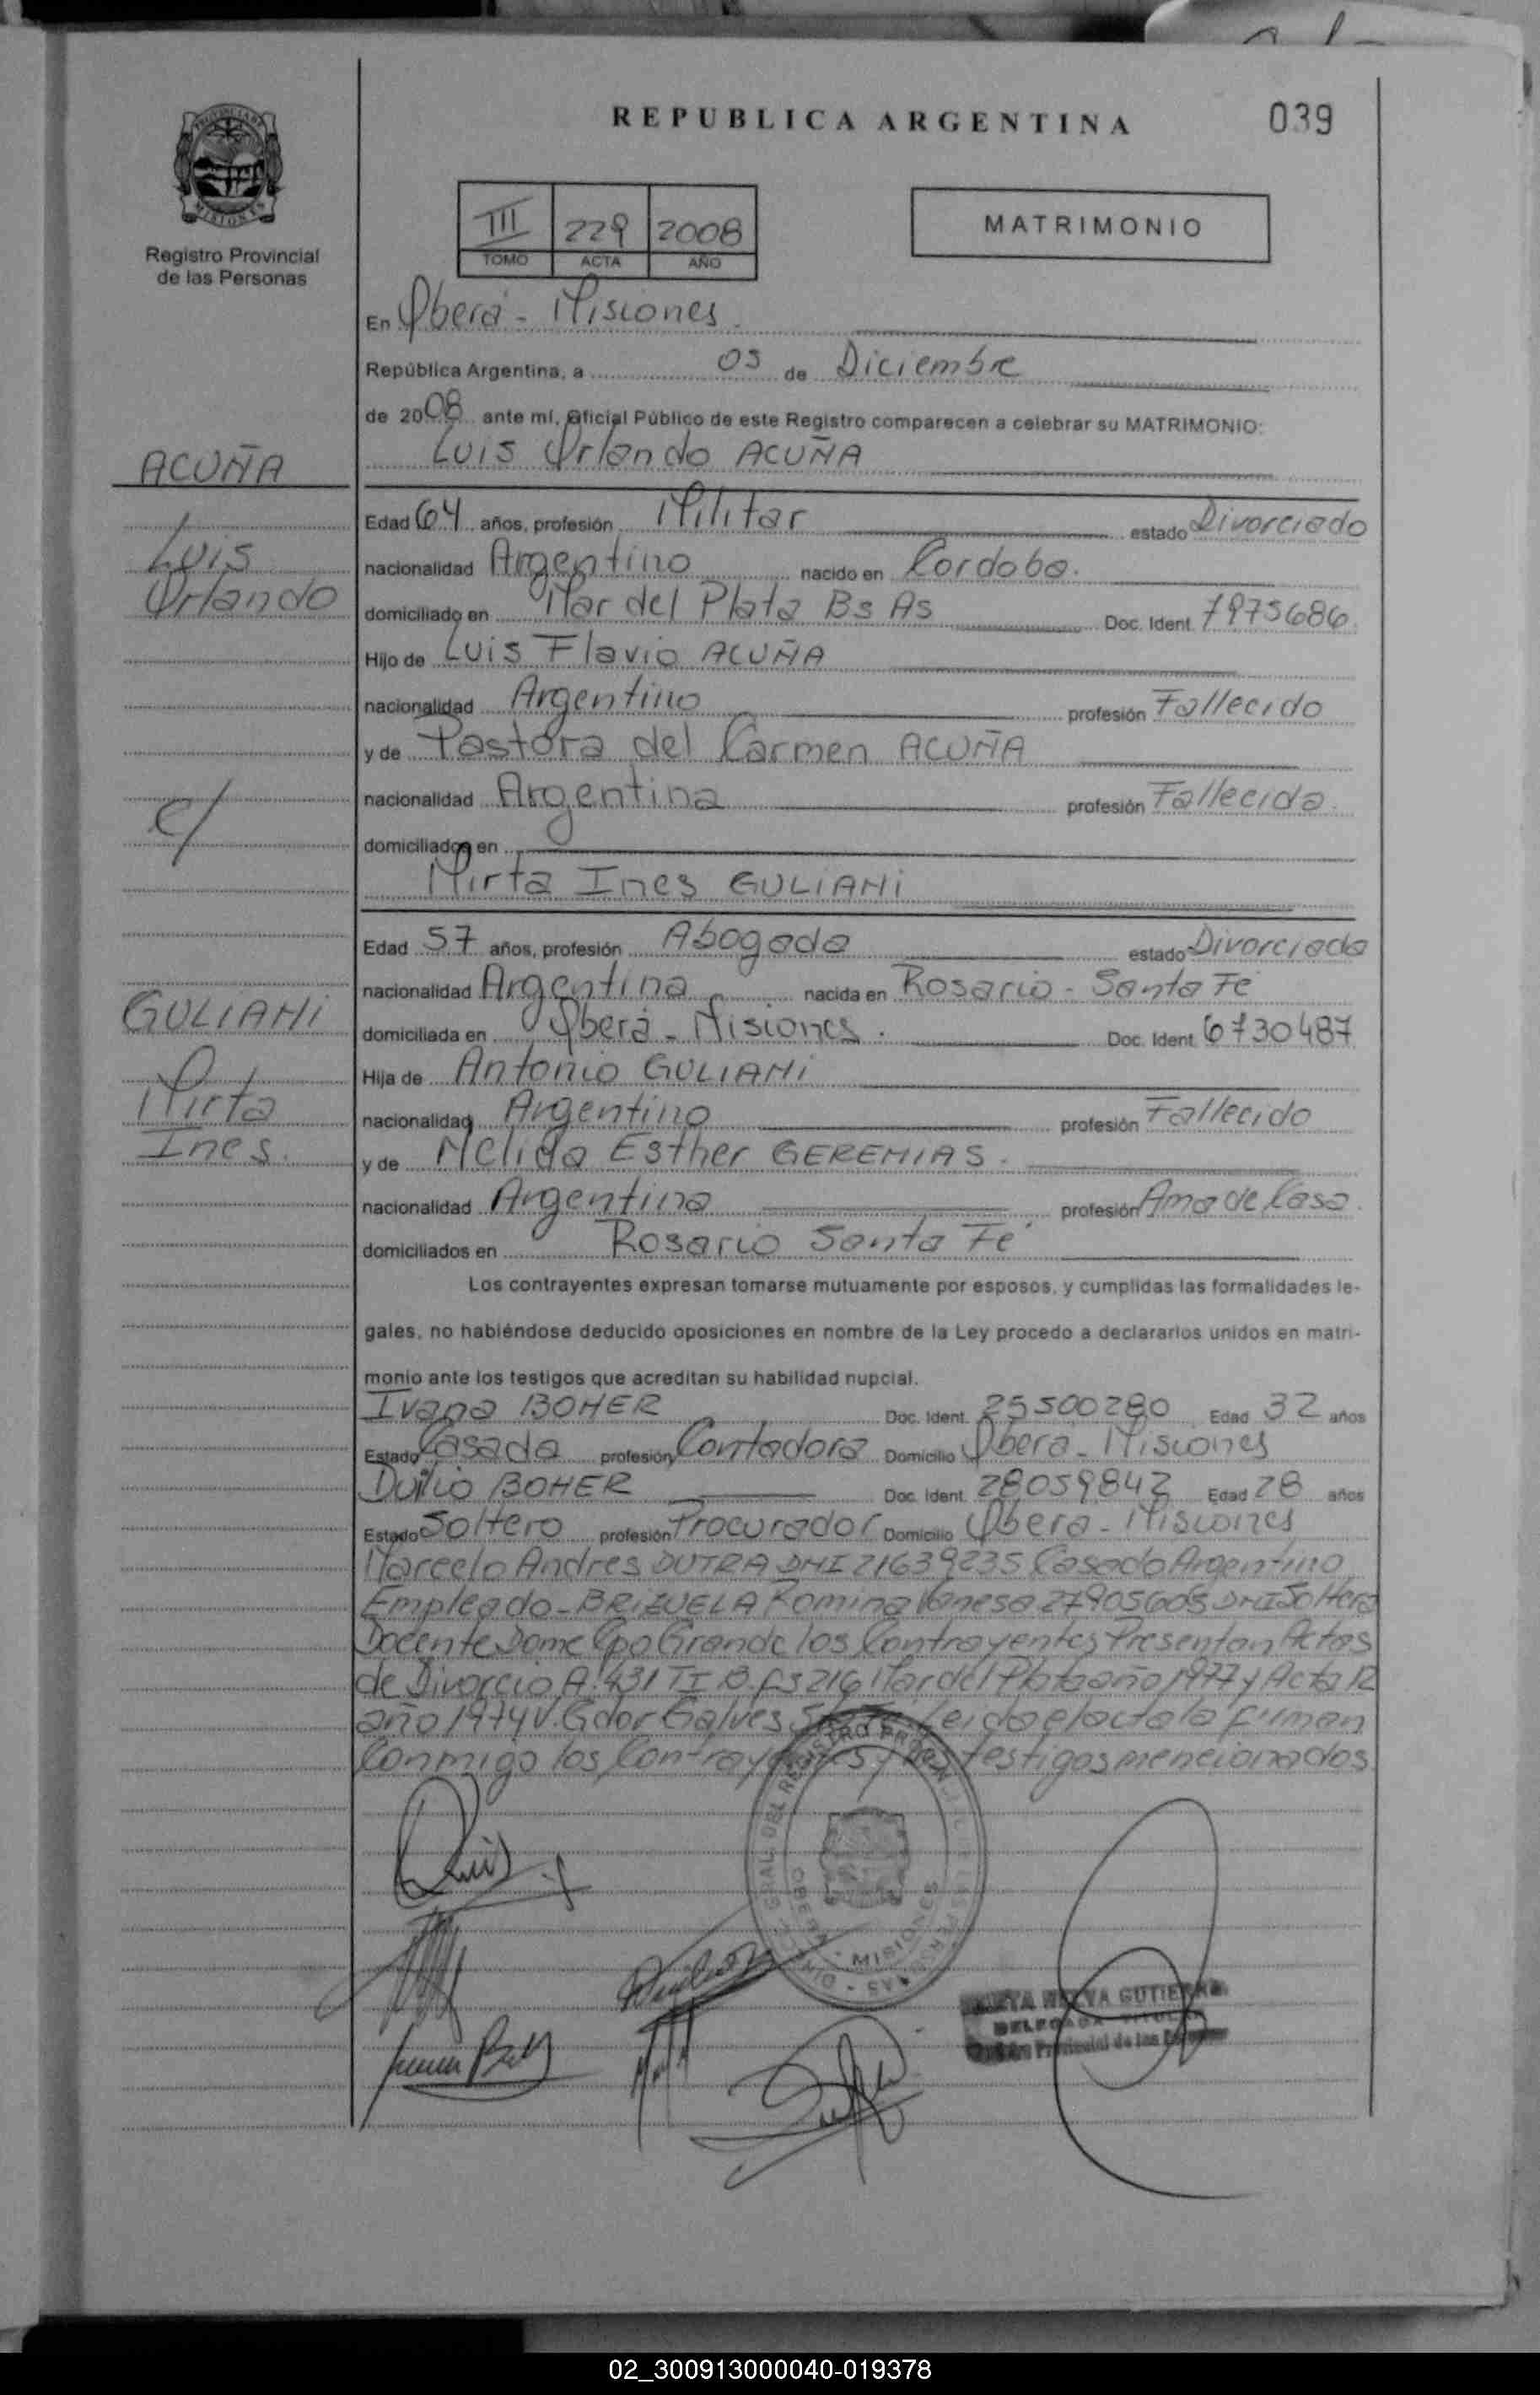 REPUBLICA ARGENTINA
039
PROVINCIA DE
MISIONES
Registro Provincial
de las Personas
MATRIMONIO
III 229 2008
TOMO ACTA AÑO
En Oberá - Misiones
República Argentina, a 05 de Diciembre
de 2008 ante mí, Oficial Público de este Registro comparecen a celebrar su MATRIMONIO:
Luis Orlando ACUÑA
ACUÑA
Luis
Orlando
c/
GULIANI
Mirta
Ines.
Edad 64 años, profesión Militar estado Divorciado
nacionalidad Argentino nacido en Cordoba.
domiciliado en Mar del Plata Bs As Doc. Ident. 7975686
Hijo de Luis Flavio ACUÑA
nacionalidad Argentino profesión Fallecido
y de Pastora del Carmen ACUÑA
nacionalidad Argentina profesión Fallecida.
domiciliados en
Mirta Ines GULIANI
Edad 57 años, profesión Abogada estado Divorciada
nacionalidad Argentina nacida en Rosario - Santa Fé
domiciliada en Oberá - Misiones. Doc. Ident. 6730487
Hija de Antonio GULIANI
nacionalidad Argentino profesión Fallecido
y de Nelida Esther GEREMIAS.
nacionalidad Argentina profesión Ama de Casa.
domiciliados en Rosario Santa Fé
Los contrayentes expresan tomarse mutuamente por esposos, y cumplidas las formalidades le-
gales, no habiéndose deducido oposiciones en nombre de la Ley procedo a declararlos unidos en matri-
monio ante los testigos que acreditan su habilidad nupcial.
Ivana BOHER Doc. Ident. 25500280 Edad 32 años
Estado Casada profesión Contadora Domicilio Obera - Misiones
Duilio BOHER Doc. Ident. 28059842 Edad 28 años
Estado Soltero profesión Procurador Domicilio Obera - Misiones
Marcelo Andres DUTRA DNI 21639235 Casado Argentino
Empleado - BRIZUELA Romina Vanesa 27905605 DNI Soltera
Docente Dome Cpo Grande los Contrayentes Presentan Actas
de Divorcio A. 431 T I B. fs 216 Mar del Plata año 1977 y Acta 12
año 1974 V. Gdor Galves Leido el acta la firman
Conmigo los Contrayentes y los testigos mencionados
MISIONES
NELVA GUTIERREZ
DELEGADA TITULAR
Provincial de las Personas
02_300913000040-019378